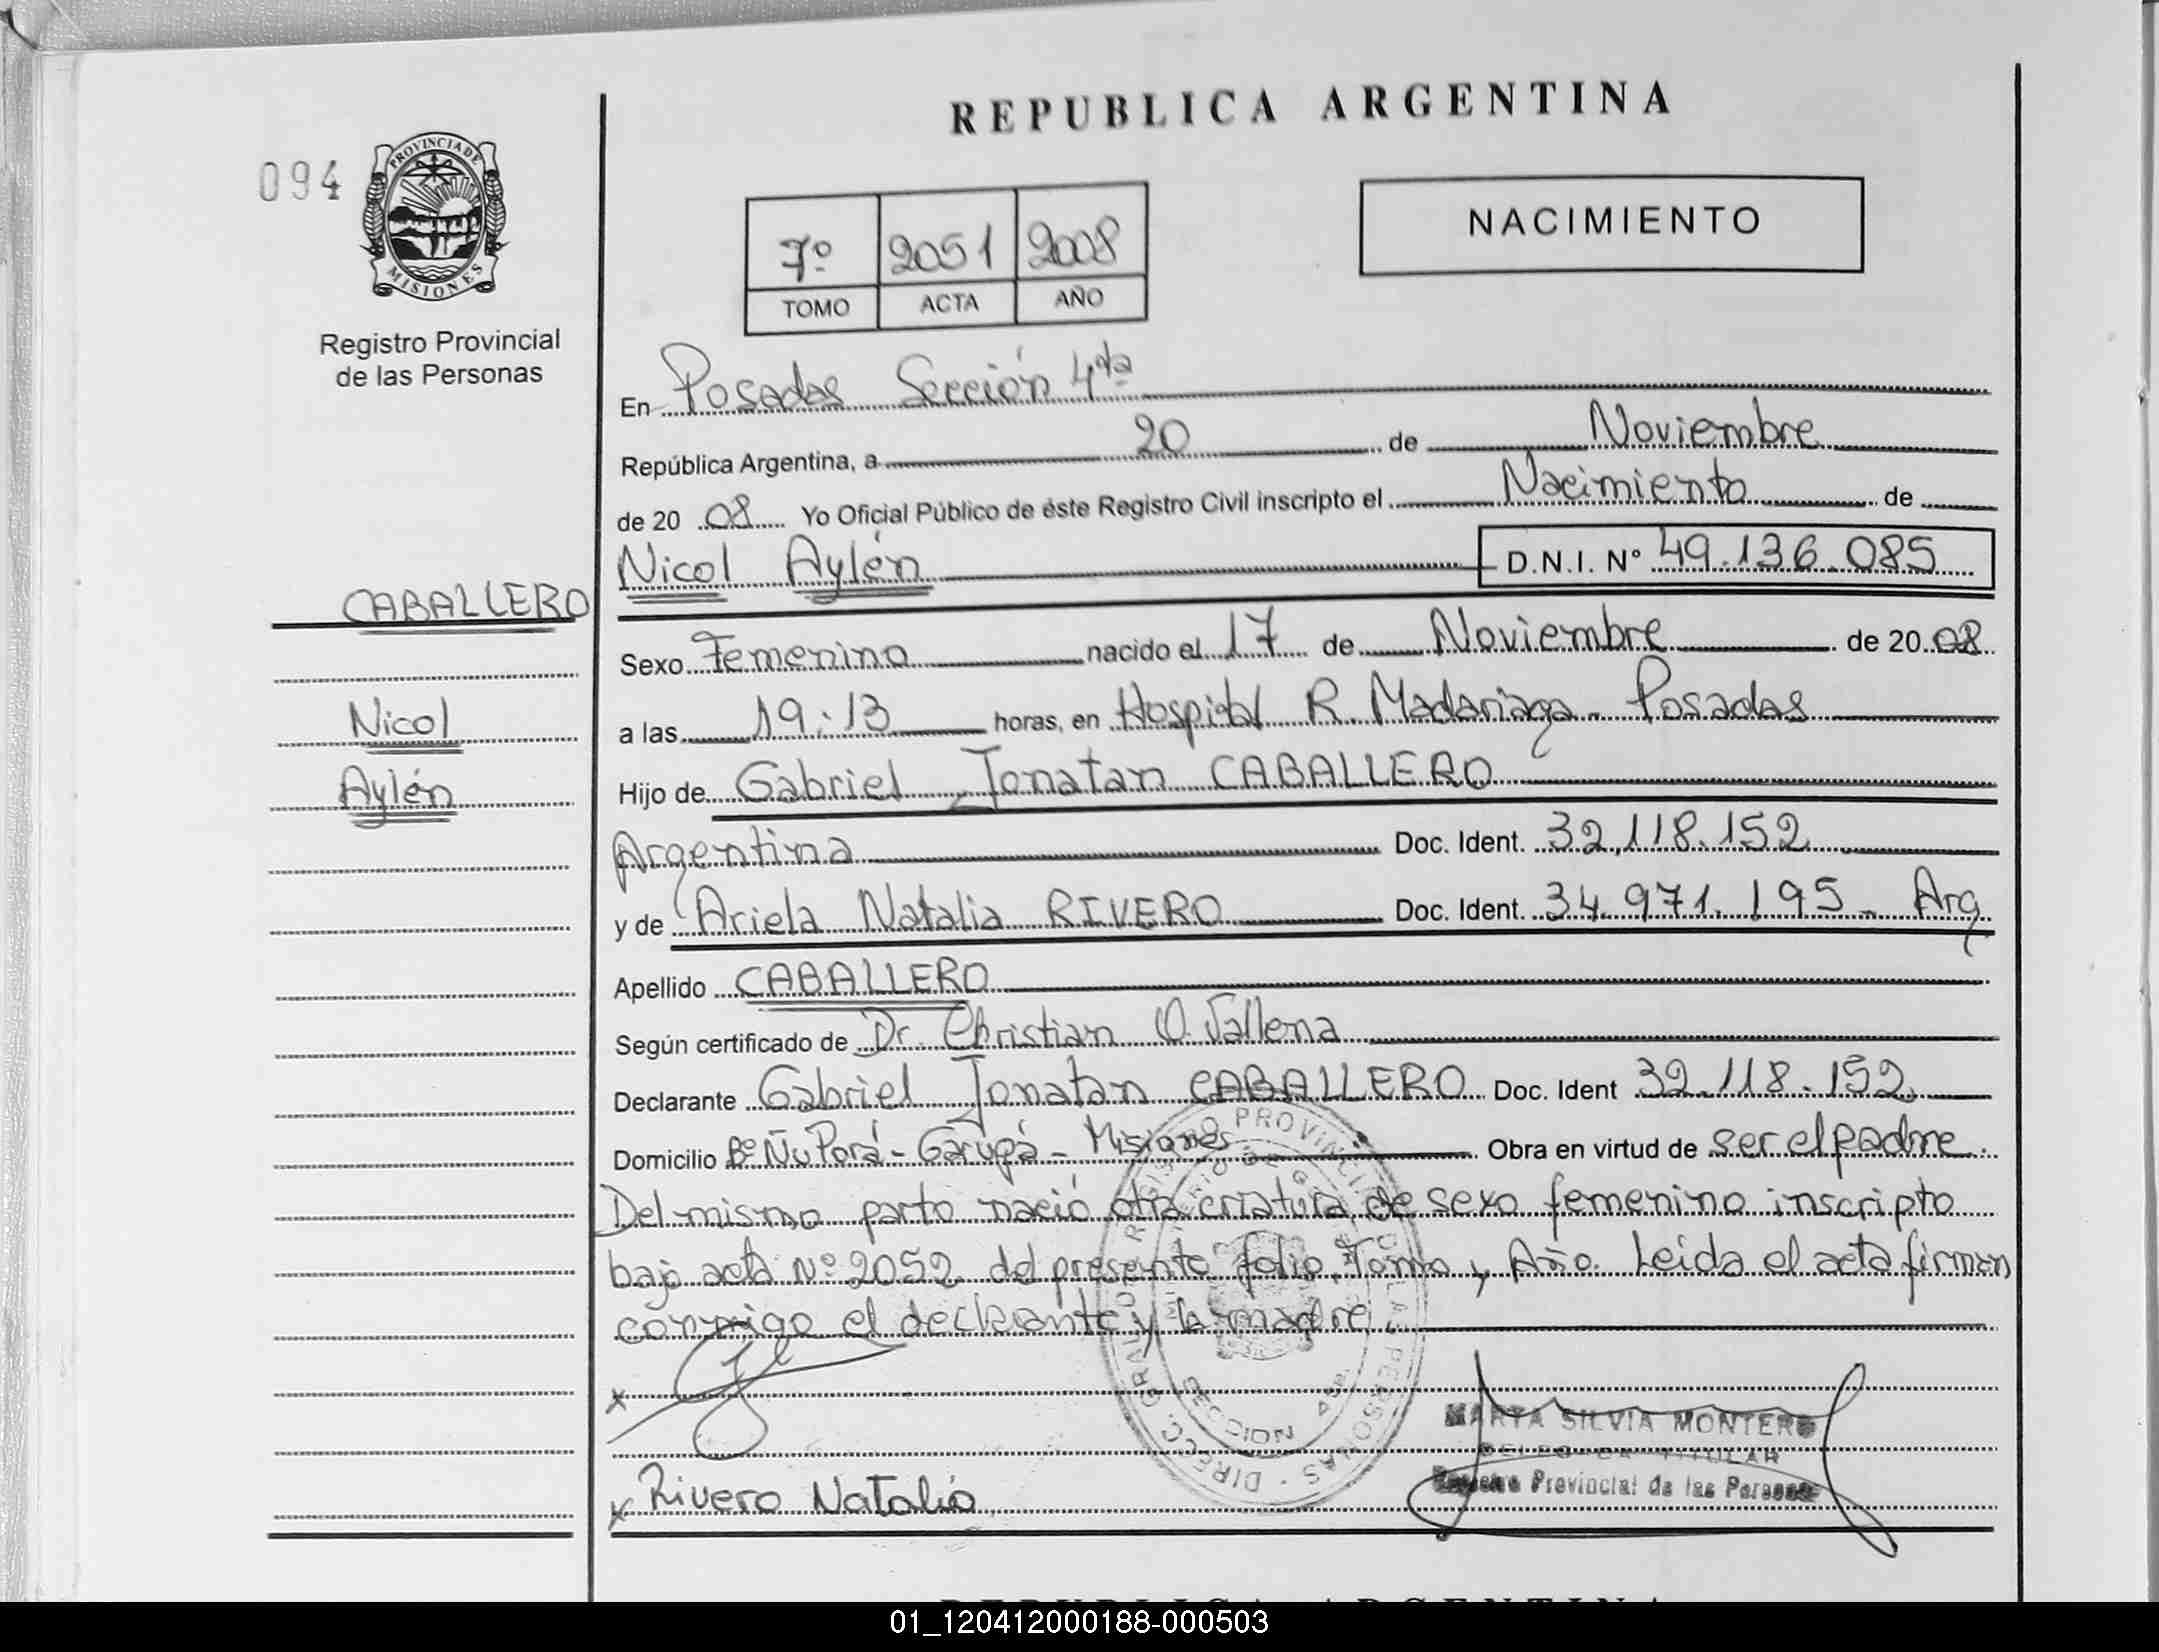 REPUBLICA ARGENTINA
094
PROVINCIA DE
MISIONES
Registro Provincial
de las Personas
NACIMIENTO
7º 2051 2008
TOMO ACTA AÑO
En Posadas Sección 4ta
República Argentina, a 20 de Noviembre
de 20 08 Yo Oficial Público de éste Registro Civil inscripto el Nacimiento de
Nicol Aylén D.N.I. Nº 49.136.085
CABALLERO
Nicol
Aylén
Sexo Femenino nacido el 17 de Noviembre de 20 08
a las 19:13 horas, en Hospital R. Madariaga - Posadas
Hijo de Gabriel Jonatan CABALLERO
Argentina Doc. Ident. 32.118.152
y de Ariela Natalia RIVERO Doc. Ident. 34.971.195 - Arg
Apellido CABALLERO
Según certificado de Dr. Christian O.
Declarante Gabriel Jonatan CABALLERO Doc. Ident 32.118.152
Domicilio Bº Ñu Porá - Garupá - Misiones Obra en virtud de ser el padre.
Del mismo parto nació otra criatura de sexo femenino inscripto
bajo acta Nº 2052 del presente folio, Tomo y Año. Leida el acta firman
conmigo el declarante y la madre.
x
x Rivero Natalia
MARTA SILVIA MONTERO
TITULAR
Registro Provincial de las Personas
REPUBLICA ARGENTINA
01_120412000188-000503